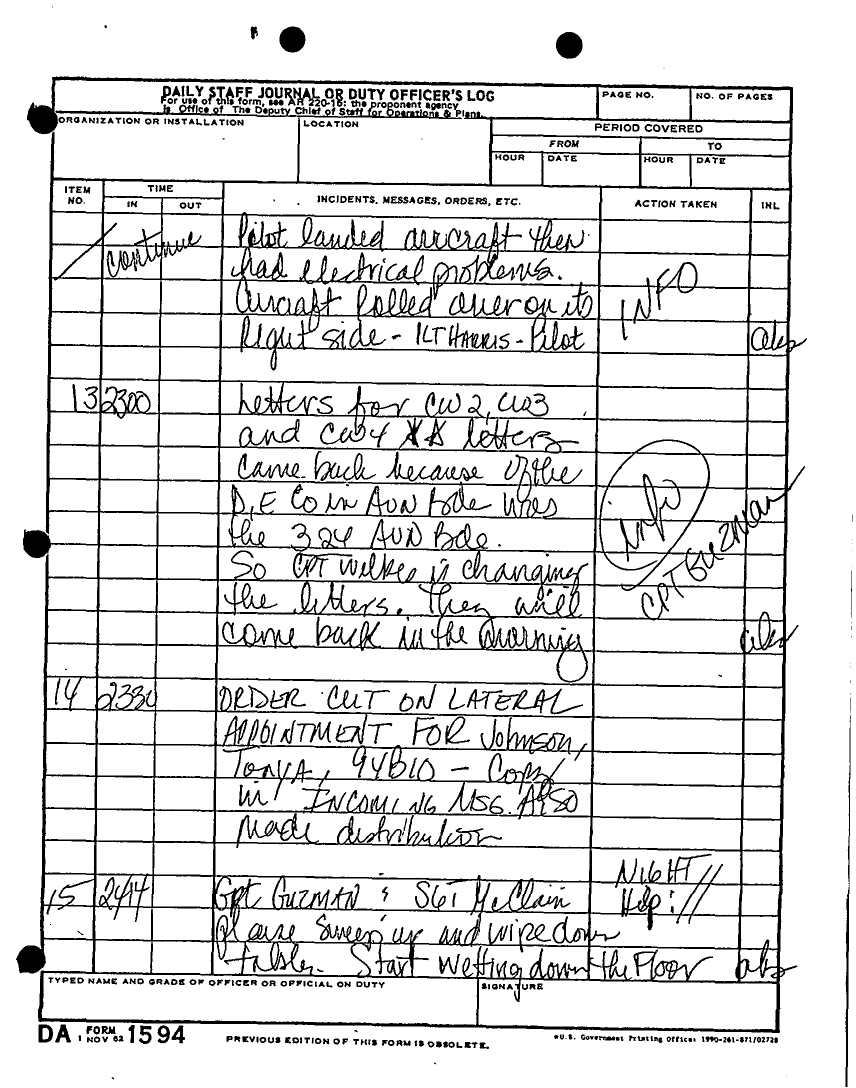 DAILY STAFF JOURNAL OR DUTY OFFICER'S LOG
For use of this form, see AR 220-15: the proponent agency
is Office of The Deputy Chief of Staff for Operations & Plans.
PAGE NO.
NO. OF PAGES
ORGANIZATION OR INSTALLATION
LOCATION
PERIOD COVERED
FROM
TO
HOUR
DATE
HOUR
DATE
ITEM NO.
TIME
IN
OUT
INCIDENTS, MESSAGES, ORDERS, ETC.
ACTION TAKEN
INL
continue
Pilot landed aircraft then
had electrical problems.
Aircraft Rolled over on its
Right side - 1LT HARRIS - Pilot
INFO
13 2300
Letters for CW2, CW3
and CW4 letters
came back because of the
D, E Co in AVN Bde was
the 324 AVN Bde.
So CPT Wilkes is changing
the letters. They will
come back in the morning
info
CPT GUZMAN
14 2330
ORDER CUT ON LATERAL
APPOINTMENT FOR Johnson,
Tonya, 94B10 - Copy
in INCOMING MSG. Also
made distribution
15 2414
Cpt GUZMAN & SGT McClain
please sweep up and wipe down
tables. Start wetting down the Floor
NIGHT
Help!//
TYPED NAME AND GRADE OF OFFICER OR OFFICIAL ON DUTY
SIGNATURE
DA FORM 1 NOV 62 1594
PREVIOUS EDITION OF THIS FORM IS OBSOLETE.
*U.S. Government Printing Office: 1990-261-871/02728